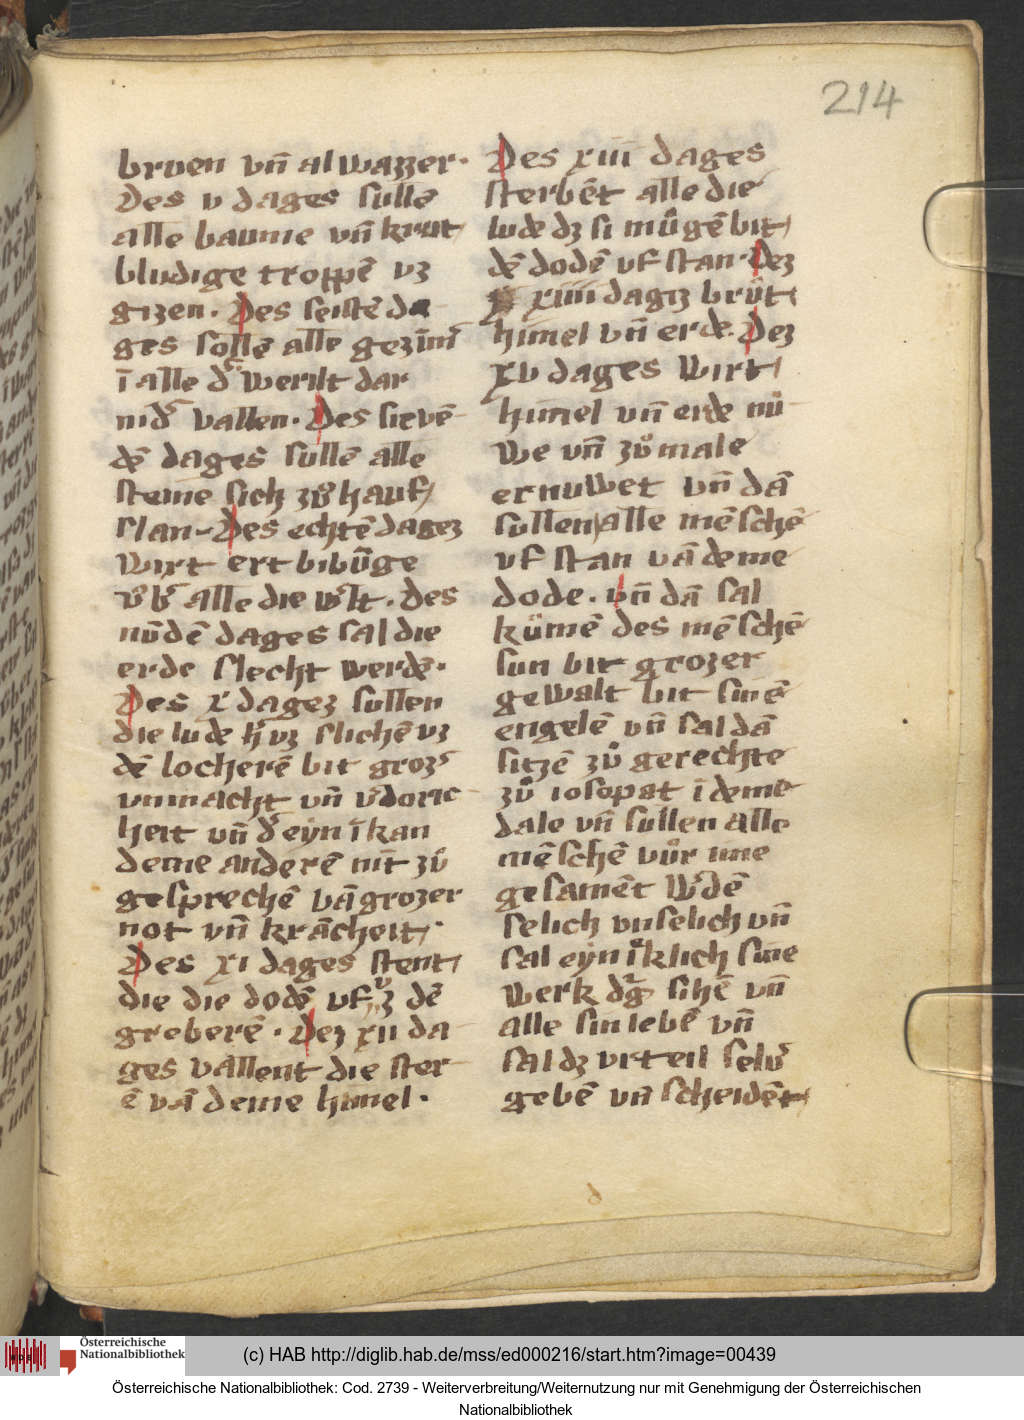 214
bruen vn̄ al wazzer·
Des v dages sullē
alle baume vn̄ krut
bludige troppē vz
gizen. Des seistē da
ges sollē alle gezīmˀ
ī alle dˀ werilt dar
nidˀ vallen. Des sievē
dē dages sullē alle
steine sich zů hauf
slan. Des echtē dagez
wirt ert bibůge
vbˀ alle die wˀlt. Des
nūdē dages sal die
erde slecht werdē.
Des x dagez sullen
die lude hˀ vz slichē vz
dē locherē bit grozˀ
vnmacht vn̄ vˀdoric
heit vn̄ dˀ eyn ī kan
deme anderē nit zů
gesprechē vā grozer
not vn̄ krācheit.
Des xi dages stent
die die dodē vf vz dē
greberē. Dez xii da
ges vallent die ster
ē vā deme himel.
Des xiii dages
sterbēt alle die
lude dz si můgē bit
dē dodē vf stan. Dez
xiiii dagiz brůt
himel vn̄ erde. Dez
xv dages wirt
himel vn̄ erde nů
we vn̄ zůmale
ernuwet vn̄ dā
sullen alle mēschē
vf stan vā deme
dode. vn̄ dā sal
kůmē des mēschē
sun bit grozer
gewalt bit sinē
engelē vn̄ sal dā
sitzē zů gerechte
zů iosopat ī deme
dale vn̄ sullen alle
mēschē vůr ime
gesamēt wˀdē
selich vnselich vn̄
sal eyn iklich sine
werk sihē vn̄
alle sin lebē vn̄
sal dz vrteil selvˀ
gebē vn̄ scheidēt
Österreichische
Nationalbibliothek
(c) HAB http://diglib.hab.de/mss/ed000216/start.htm?image=00439
Österreichische Nationalbibliothek: Cod. 2739 - Weiterverbreitung/Weiternutzung nur mit Genehmigung der Österreichischen
Nationalbibliothek